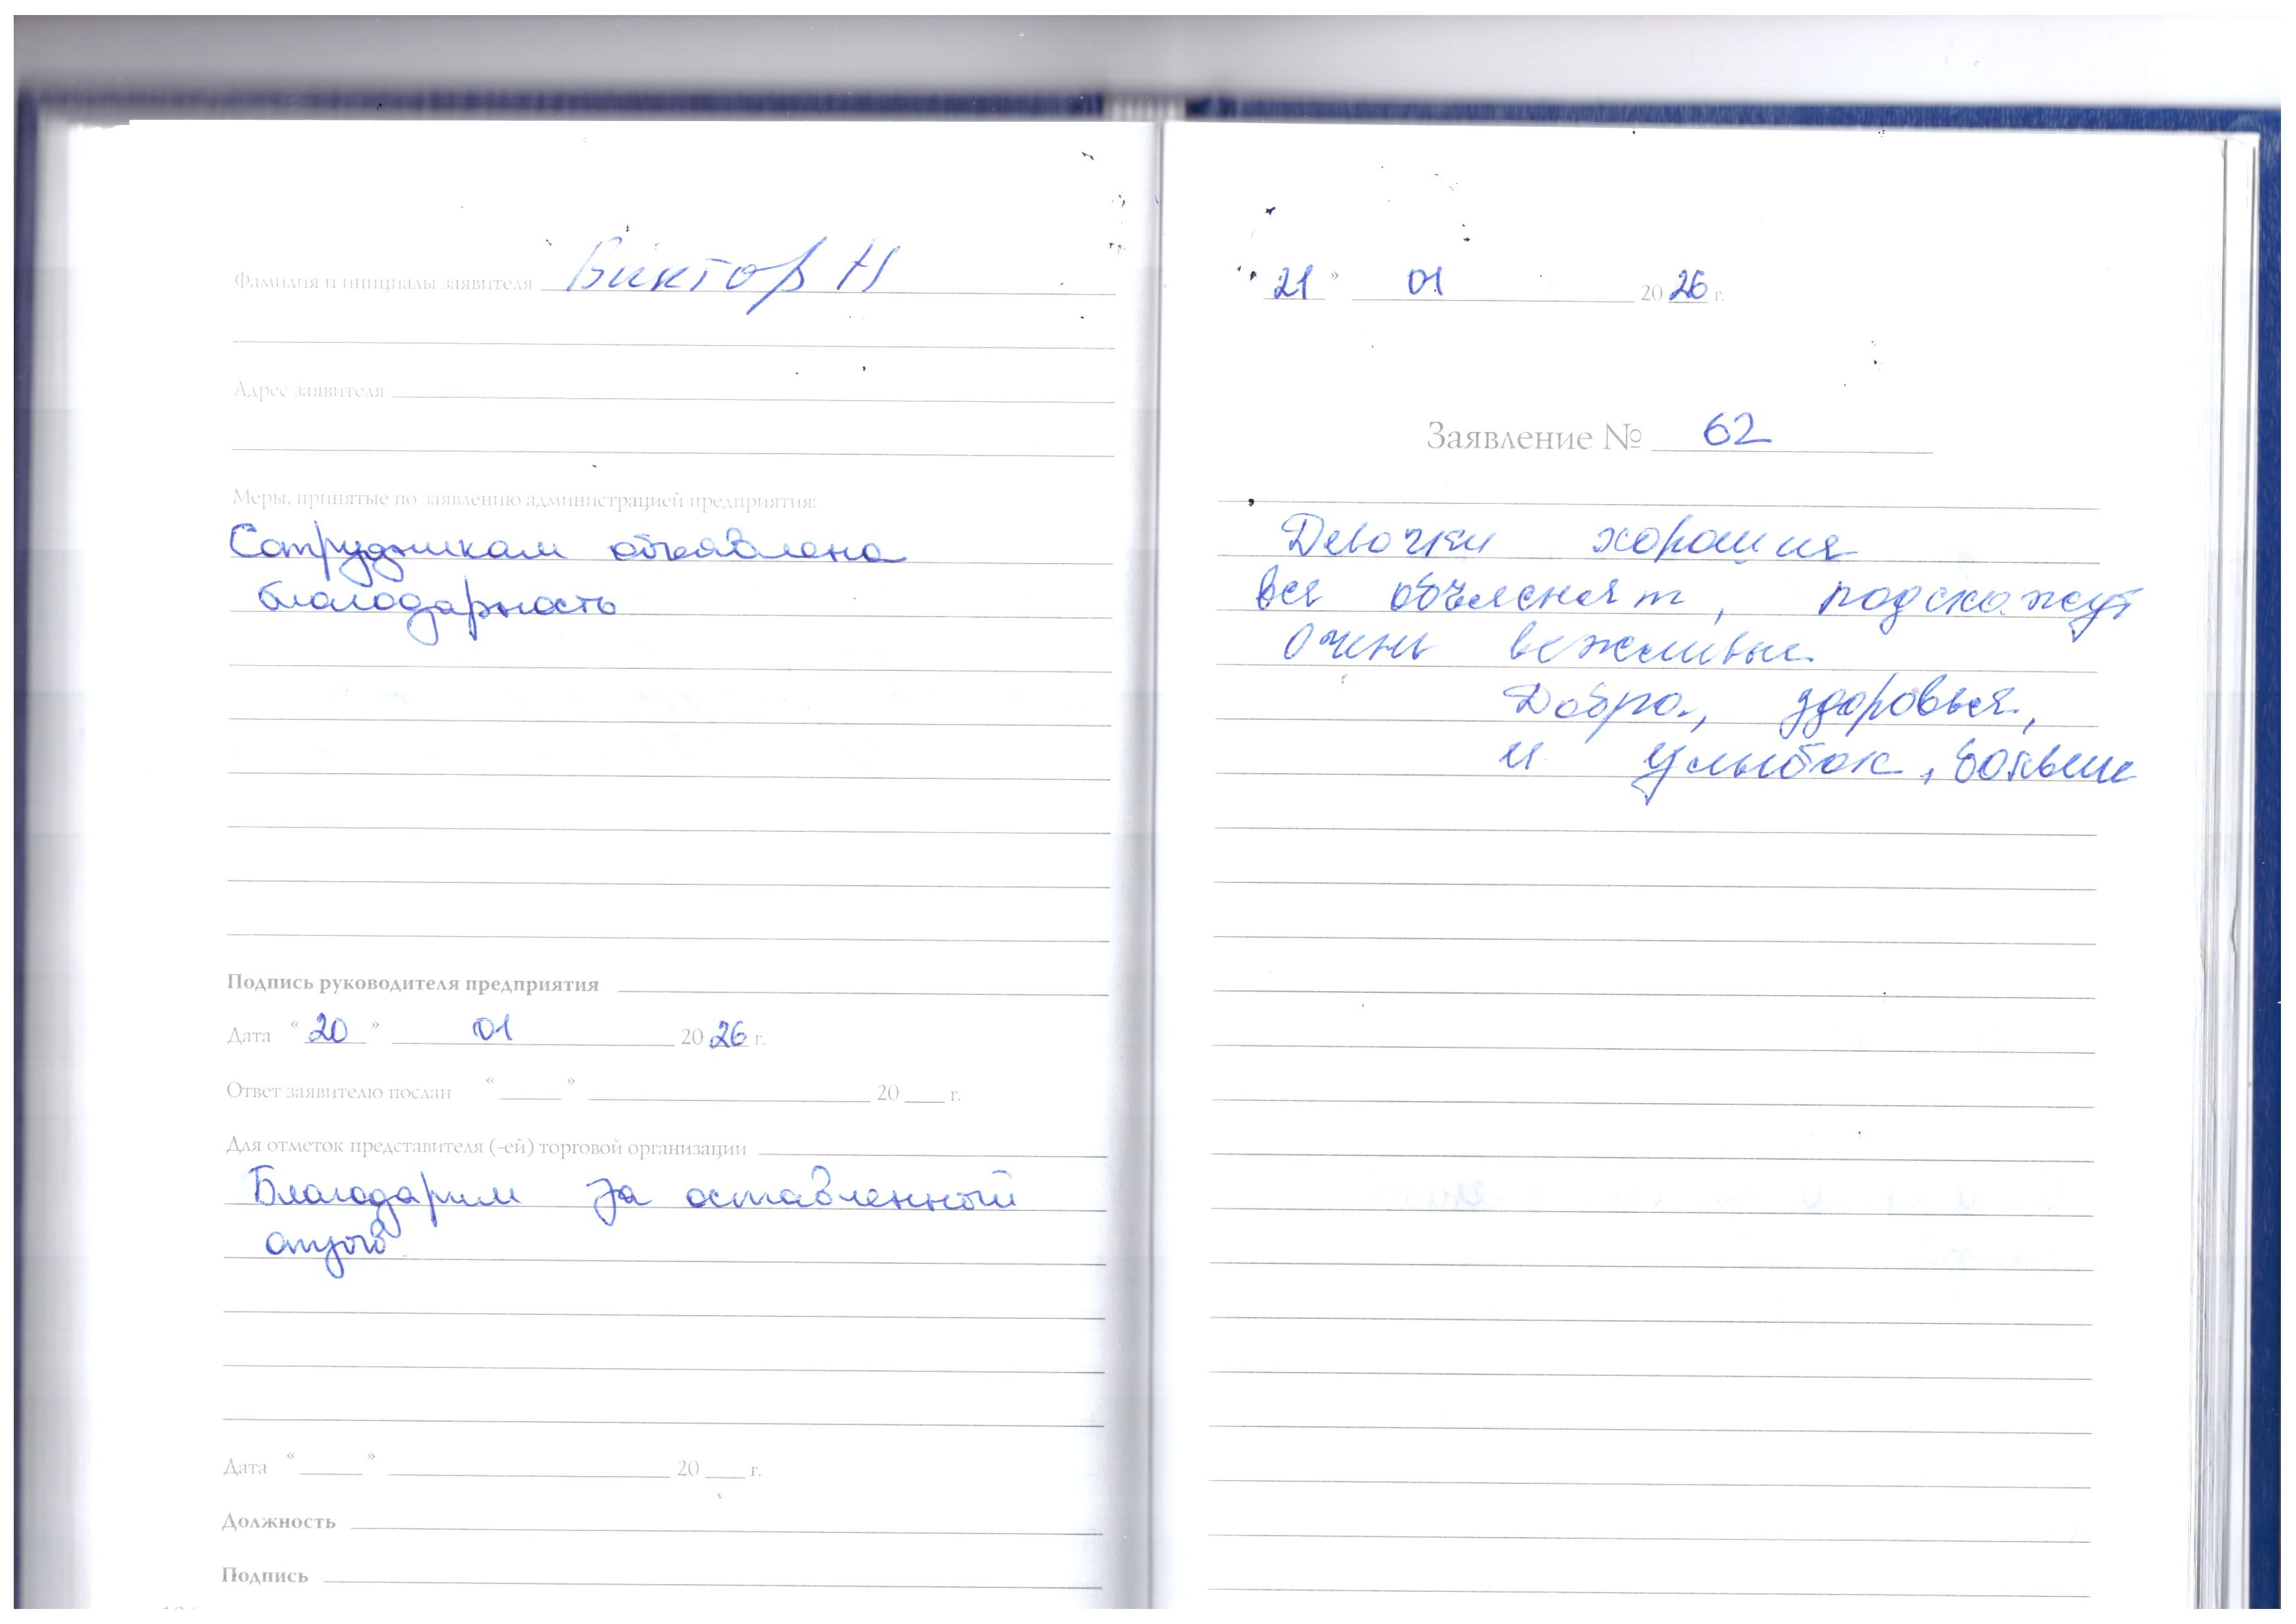 Фамилия и инициалы заявителя Виктор Н
Адрес заявителя
Меры, принятые по заявлению администрацией предприятия:
Сотрудникам объявлена
благодарность
Подпись руководителя предприятия
Дата "20" 01 2026 г.
Ответ заявителю послан " " 20 г.
Для отметок представителя (-ей) торговой организации
Благодарим за оставленный
отзыв
Дата " " 20 г.
Должность
Подпись
"21" 01 2026 г.
Заявление № 62
Девочки хорошия
вся объяснят, подскажут
очень вежливые
Добра, здоровья,
и улыбок, больше